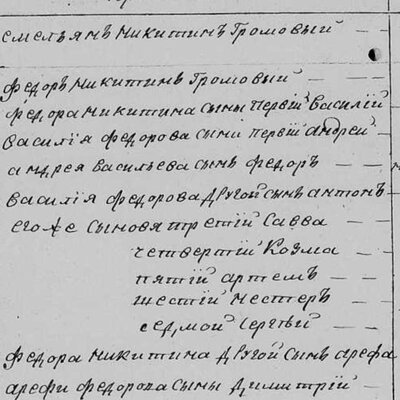 емельянъ никитинъ Громовый
Федоръ никитинъ Громовый
Федора никитина сыны первій Василій
Василія Федорова сыны первій андрей
андрея васильева сынъ Федоръ
Василія Федорова другой сынъ антонъ
егоже сыновя третій Савва
четвертій Козма
пятій артемъ
шестій нестеръ
седмой Сергѣй
Федора никитина другой сынъ арефа
арефи Федорова сыны Димитрій